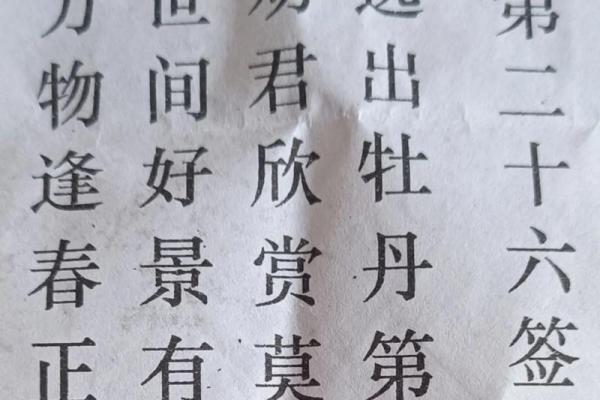 第二十六签
选出牡丹第
劝君欣赏莫
世间好景有
万物逢春正